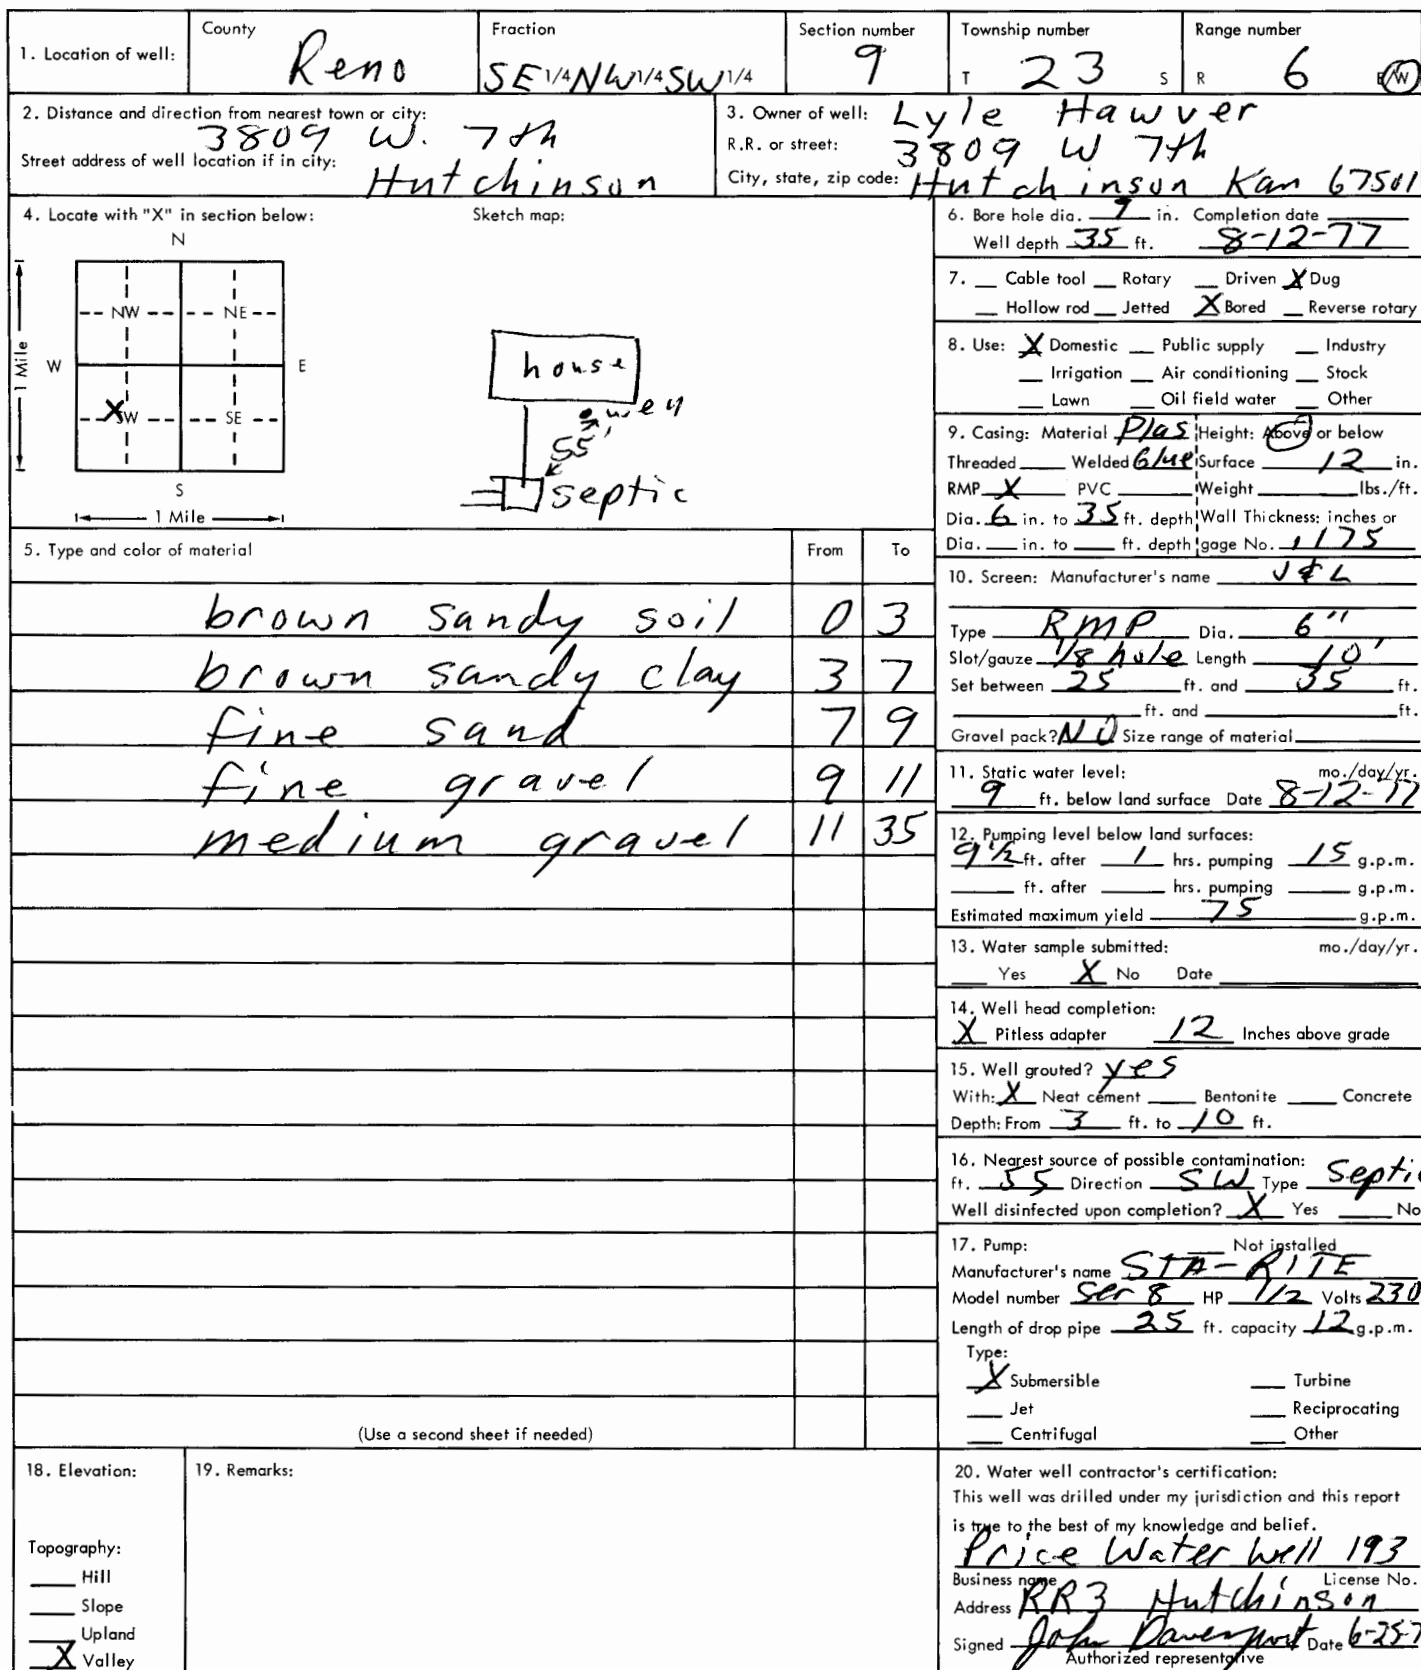 1. Location of well: County Reno Fraction SE 1/4 NW 1/4 SW 1/4 Section number 9 Township number T 23 S Range number R 6 E/W
2. Distance and direction from nearest town or city: 3809 W. 7th
Street address of well location if in city: Hutchinson
3. Owner of well: Lyle Hawver
R.R. or street: 3809 W 7th
City, state, zip code: Hutchinson Kan 67501
4. Locate with "X" in section below:
N
NW NE
W E
X SW SE
S
1 Mile
1 Mile
Sketch map:
house
well
55'
septic
5. Type and color of material From To
brown sandy soil 0 3
brown sandy clay 3 7
fine sand 7 9
fine gravel 9 11
medium gravel 11 35
(Use a second sheet if needed)
6. Bore hole dia. 9 in. Completion date
Well depth 35 ft. 8-12-77
7. Cable tool Rotary Driven X Dug
Hollow rod Jetted X Bored Reverse rotary
8. Use: X Domestic Public supply Industry
Irrigation Air conditioning Stock
Lawn Oil field water Other
9. Casing: Material Plas Height: Above or below
Threaded Welded Glue Surface 12 in.
RMP X PVC Weight lbs./ft.
Dia. 6 in. to 35 ft. depth Wall Thickness: inches or
Dia. in. to ft. depth gage No. .175
10. Screen: Manufacturer's name J & L
Type RMP Dia. 6"
Slot/gauze 1/8 hole Length 10'
Set between 25 ft. and 35 ft.
ft. and ft.
Gravel pack? NO Size range of material
11. Static water level: mo./day/yr.
9 ft. below land surface Date 8-12-77
12. Pumping level below land surfaces:
9 1/2 ft. after 1 hrs. pumping 15 g.p.m.
ft. after hrs. pumping g.p.m.
Estimated maximum yield 75 g.p.m.
13. Water sample submitted: mo./day/yr.
Yes X No Date
14. Well head completion:
X Pitless adapter 12 Inches above grade
15. Well grouted? yes
With: X Neat cement Bentonite Concrete
Depth: From 3 ft. to 10 ft.
16. Nearest source of possible contamination:
ft. 55 Direction SW Type Septic
Well disinfected upon completion? X Yes No
17. Pump: Not installed
Manufacturer's name STA-RITE
Model number Ser 8 HP 1/2 Volts 230
Length of drop pipe 25 ft. capacity 12 g.p.m.
Type:
X Submersible Turbine
Jet Reciprocating
Centrifugal Other
18. Elevation:
Topography:
Hill
Slope
Upland
X Valley
19. Remarks:
20. Water well contractor's certification:
This well was drilled under my jurisdiction and this report
is true to the best of my knowledge and belief.
Price Water Well 193
Business name License No.
Address RR3 Hutchinson
Signed John Davenport Date
Authorized representative